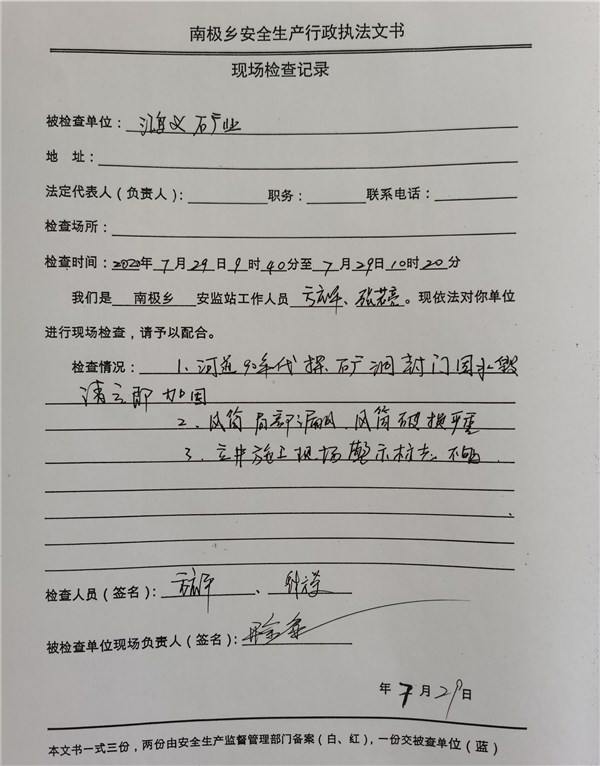 南极乡安全生产行政执法文书
现场检查记录
被检查单位：矿业
地 址：
法定代表人（负责人）： 职务： 联系电话：
检查场所：
检查时间：2020年7月29日9时40分至7月29日10时20分
我们是 南极乡 安监站工作人员 、张若亮。现依法对你单位
进行现场检查，请予以配合。
检查情况：1、河边90年代探矿洞封门因水毁
请立即加固
2、风筒局部漏风、风筒破损严重
3、立井施工现场警示标志不够
检查人员（签名）：、
被检查单位现场负责人（签名）：
年7月29日
本文书一式三份，两份由安全生产监督管理部门备案（白、红），一份交被查单位（蓝）